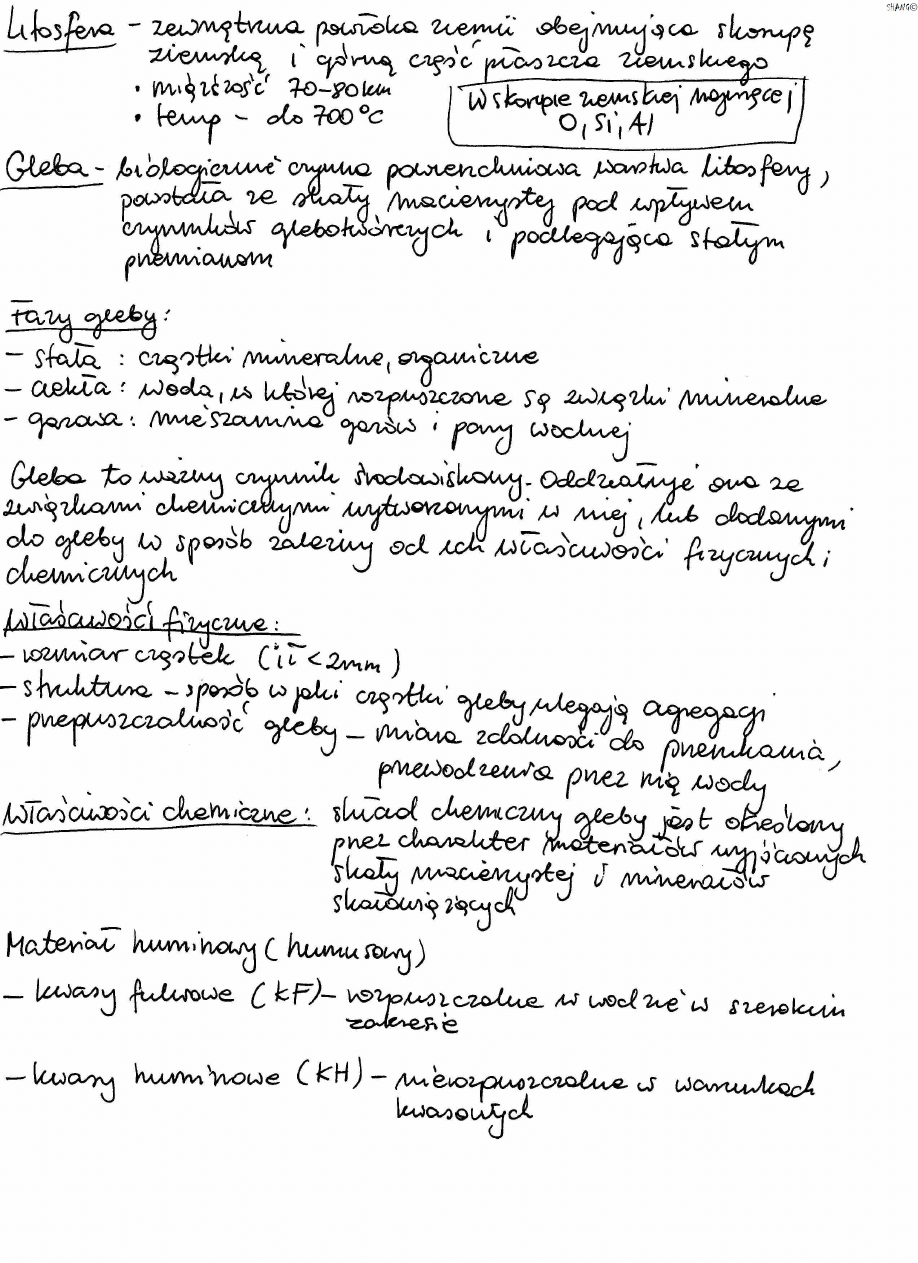 SHANG©
Litosfera – zewnętrzna powłoka ziemii obejmująca skorupę
ziemską i górną część płaszcza ziemskiego
• miąższość 70-80km
• temp – do 700°C
W skorupie ziemskiej najwięcej
O, Si, Al
Gleba – biologicznie czynna powierzchniowa warstwa litosfery,
powstała ze skały macierzystej pod wpływem
czynników glebotwórczych i podlegająca stałym
przemianom
Fazy gleby:
– stała : cząstki mineralne, organiczne
– ciekła : woda, w której rozpuszczone są związki mineralne
– gazowa : mieszanina gazów i pary wodnej
Gleba to ważny czynnik środowiskowy. Oddziałuje ona ze
związkami chemicznymi wytworzonymi w niej, lub dodanymi
do gleby w sposób zależny od ich właściwości fizycznych i
chemicznych
Właściwości fizyczne:
– rozmiar cząstek (ił < 2mm)
– struktura – sposób w jaki cząstki gleby ulegają agregacji
– przepuszczalność gleby – miara zdolności do przenikania,
przewodzenia przez nią wody
Właściwości chemiczne: skład chemiczny gleby jest określony
przez charakter materiałów wyjściowych
skały macierzystej i minerałów
skałowiążących
Materiał huminowy (humusowy)
– kwasy fulwowe (KF) – rozpuszczalne w wodzie w szerokim
zakresie
– kwasy huminowe (KH) – nierozpuszczalne w warunkach
kwasowych